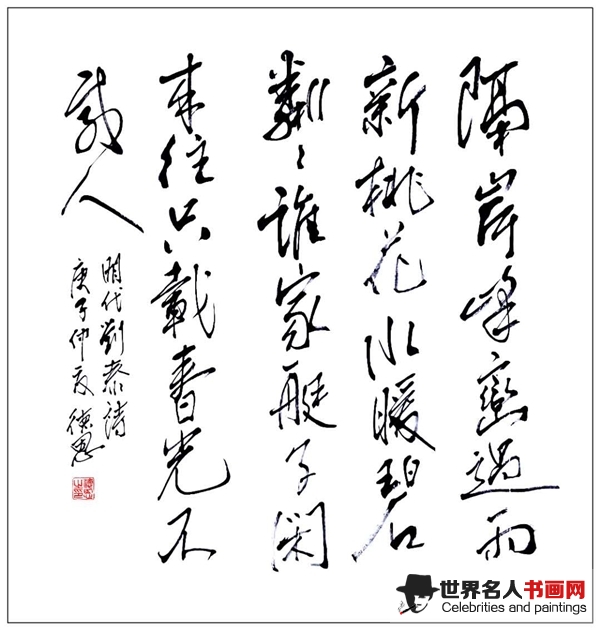 隔岸峰巒過雨
新桃花水暖碧
粼〻誰家艇子闲
来往只載春光不
載人
明代劉泰詩
庚子仲夏
世界名人书画网
Celebrities and paintings